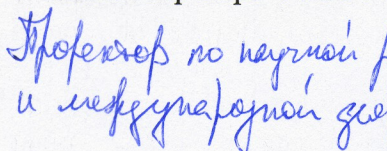 Проректор по научной
и международной